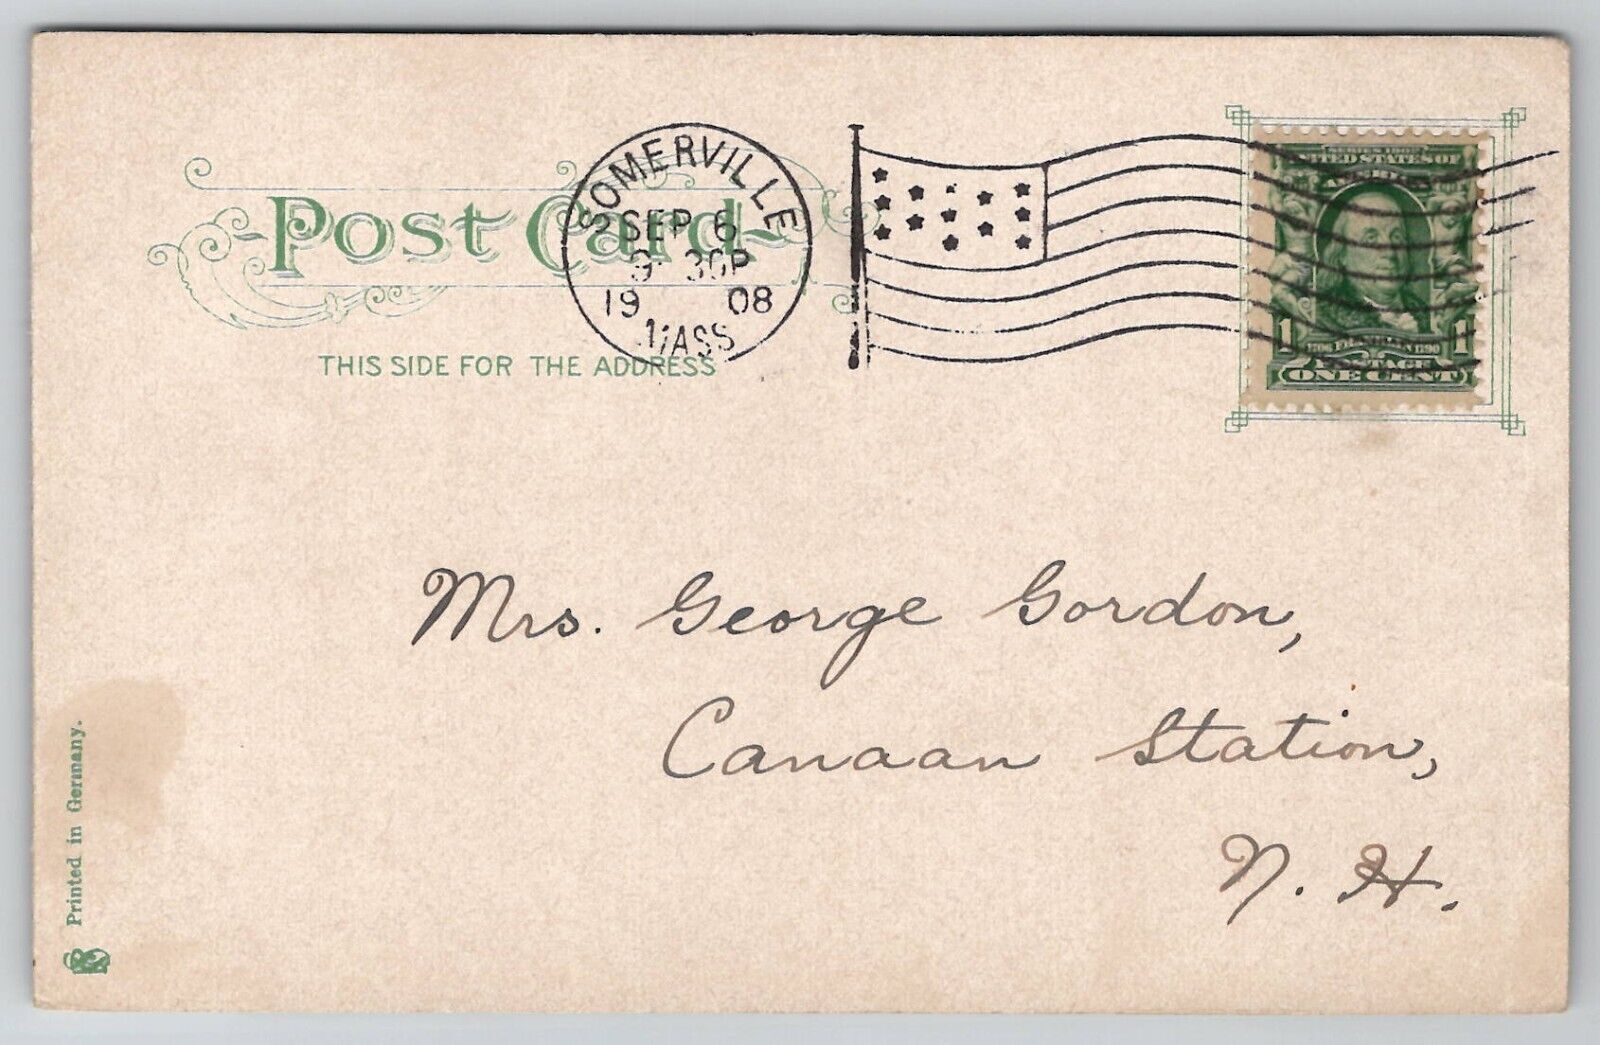 Post Card
THIS SIDE FOR THE ADDRESS
SOMERVILLE
SEP 6
9 30P
19 08
MASS
SERIES 1902
UNITED STATES OF
AMERICA
1 1706 FRANKLIN 1790 1
POSTAGE
ONE CENT
Mrs. George Gordon,
Canaan Station,
N. H.
Printed in Germany.